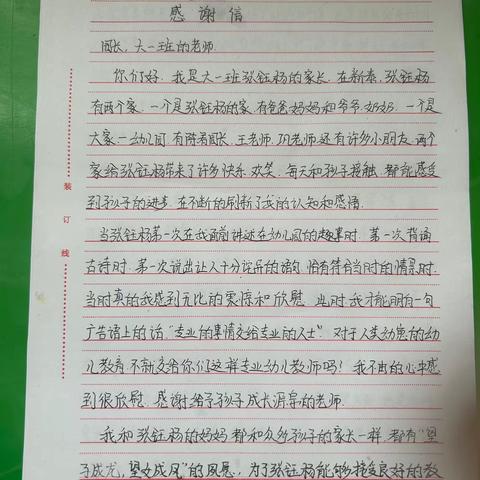 感谢信
园长,大一班的老师
你们好.我是大一班张钰杨的家长.在新泰,张钰杨
有两个家.一个是张钰杨的家.有爸爸妈妈和爷爷.奶奶.一个是
大家一幼儿园.有陈园长.王老师.巩老师还有许多小朋友.两个
家给张钰杨带来了许多快乐.欢笑.每天和孩子接触.都能感受
到孩子的进步.在不断的刷新了我的认知和感悟.
当张钰杨第一次在我面前讲述在幼儿园的趣事时.第一次背诵
古诗时.第一次说出让人十分诧异的语句.恰有符合当时的情景时.
当时真的我感到无比的震惊和欣慰.此时我才能明白一句
广告语上的话."专业的事情交给专业的人士".对于人类幼崽的幼
儿教育.不就交给你们这样专业幼儿教师吗!我不由的心中感
到很欣慰.感谢给予孩子成长源导的老师.
我和张钰杨的妈妈都和众多孩子的家长一样.都有"望
子成龙,望女成凤"的夙愿.为了张钰杨能够接受良好的教
装
订
线